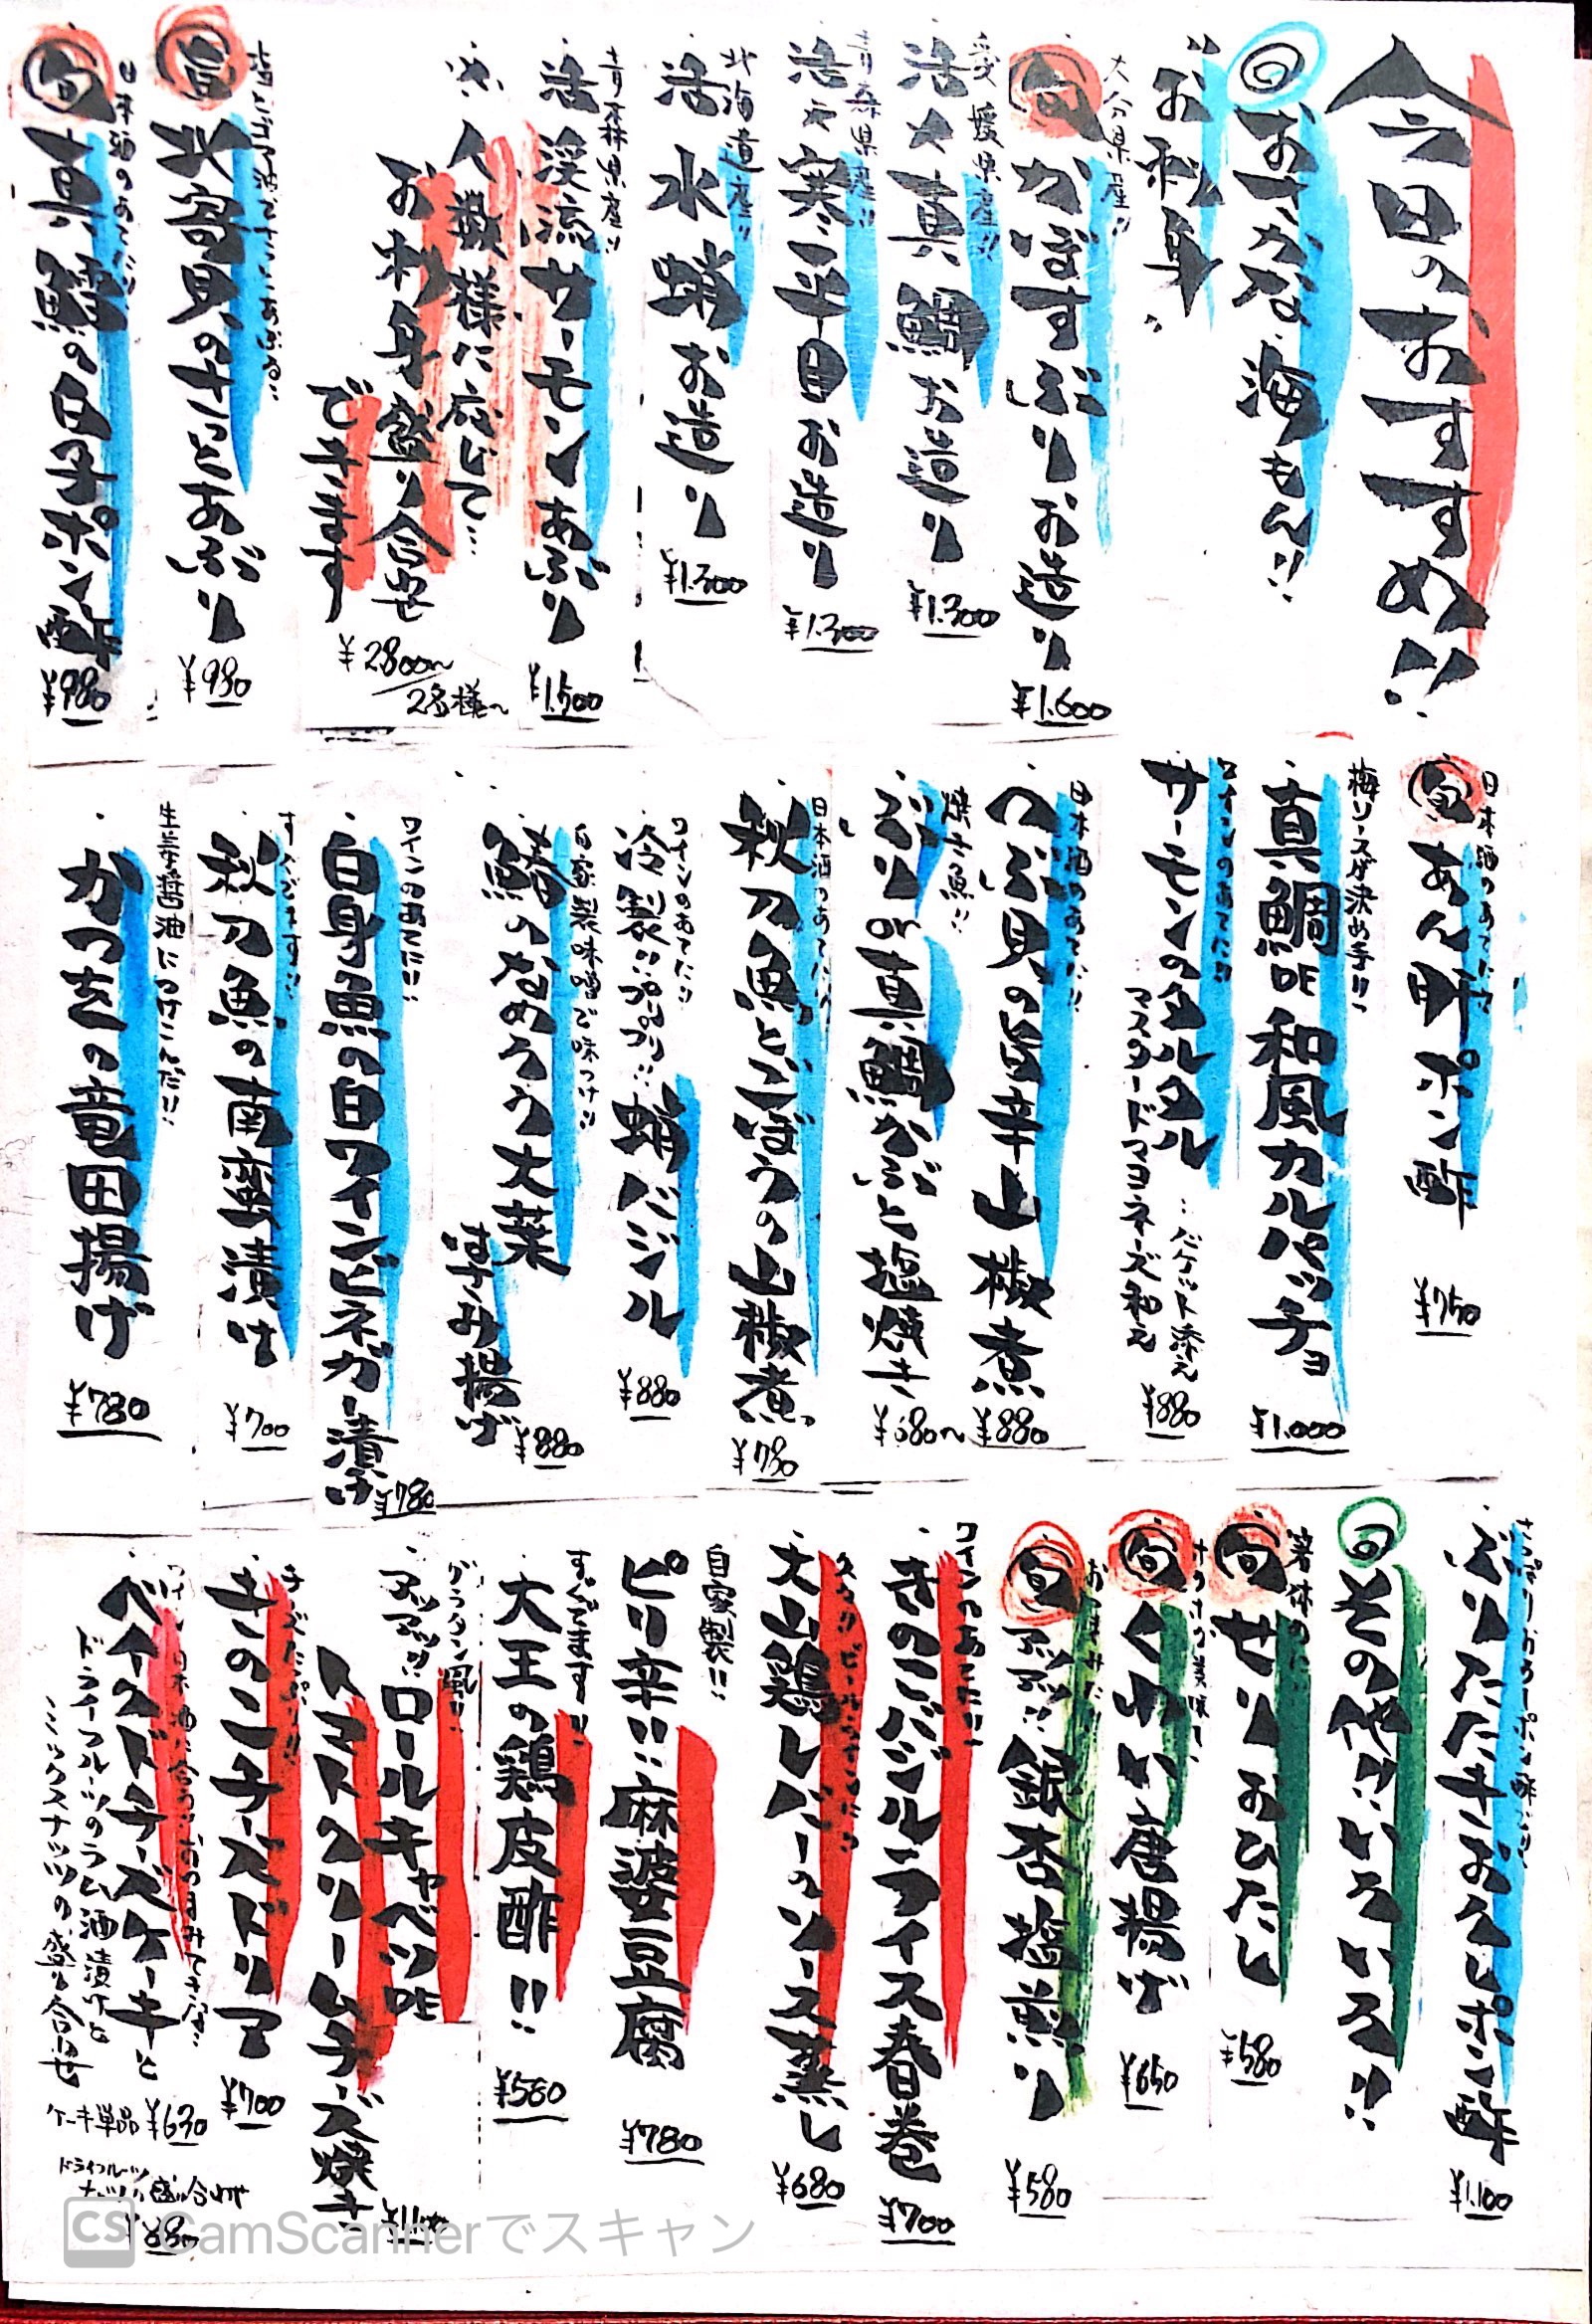 今日のおすすめ!!
の おさかな 海もん!!
"お刺身"
大分県産!!
旬 かぼすぶりお造り
¥1.600
愛媛県産!!
活〆真鯛お造り
¥1.300
青森県産!!
活〆寒平目お造り
¥1.300
北海道産!!
活水蛸お造り
¥1.300
青森県産!!
活渓流サーモンあぶり
¥1.500
人数様に応じて…
お刺身盛り合せ
できます
¥2800〜
2名様〜
旬 北寄貝のさっとあぶり
¥980
日本酒のあてに!!
旬 真鱈の白子ポン酢
¥980
日本酒のあてに!!
旬 あん肝ポン酢
¥750
梅ソースが決め手!!
真鯛の和風カルパッチョ
¥1.000
ワインのあてに!!
サーモンのタルタル
…バケット添え
マスタードマヨネーズ和え
¥880
日本酒のあてに!!
つぶ貝の旨辛山椒煮
¥880
焼き魚!!
ぶりor真鯛かぶと塩焼き
¥680〜
日本酒のあてに!!
秋刀魚とごぼうの山椒煮
¥780
ワインのあてに!!
冷製!!プリプリ!!蛸バジル
¥880
自家製味噌で味つけ!!
鯵のなめろう大葉
はさみ揚げ
¥880
ワインのあてに!!
白身魚の白ワインビネガー漬け
¥780
すぐでます!!
秋刀魚の南蛮漬け
¥700
生姜醤油につけこんだ!!
かつをの竜田揚げ
¥780
さっぱりおろしポン酢で!!
ぶりたたきおろしポン酢
¥1.100
の その他!!いろいろ!!
箸休めに
旬 せりおひたし
¥580
サクサク美味しい
旬 くわい唐揚げ
¥650
おつまみに!!
旬 熱熱!!銀杏塩煎り
¥580
ワインのあてに!!
きのこバジルライス春巻
¥700
大山鶏レバーのソース蒸し
¥680
自家製!!
ピリ辛!!麻婆豆腐
¥780
すぐでます!!
大王の鶏皮酢!!
¥580
グラタン風!!
アッツアツ!!ロールキャベツの
トマトクリームチーズ焼き
¥1.100
チーズたっぷり!!
きのこチーズドリア
¥700
ベイクドチーズケーキと
ドライフルーツのラム酒漬けと
ミックスナッツの盛り合せ
ケーキ単品 ¥630
ドライフルーツ
ナッツ盛り合わせ
¥880
CS CamScannerでスキャン